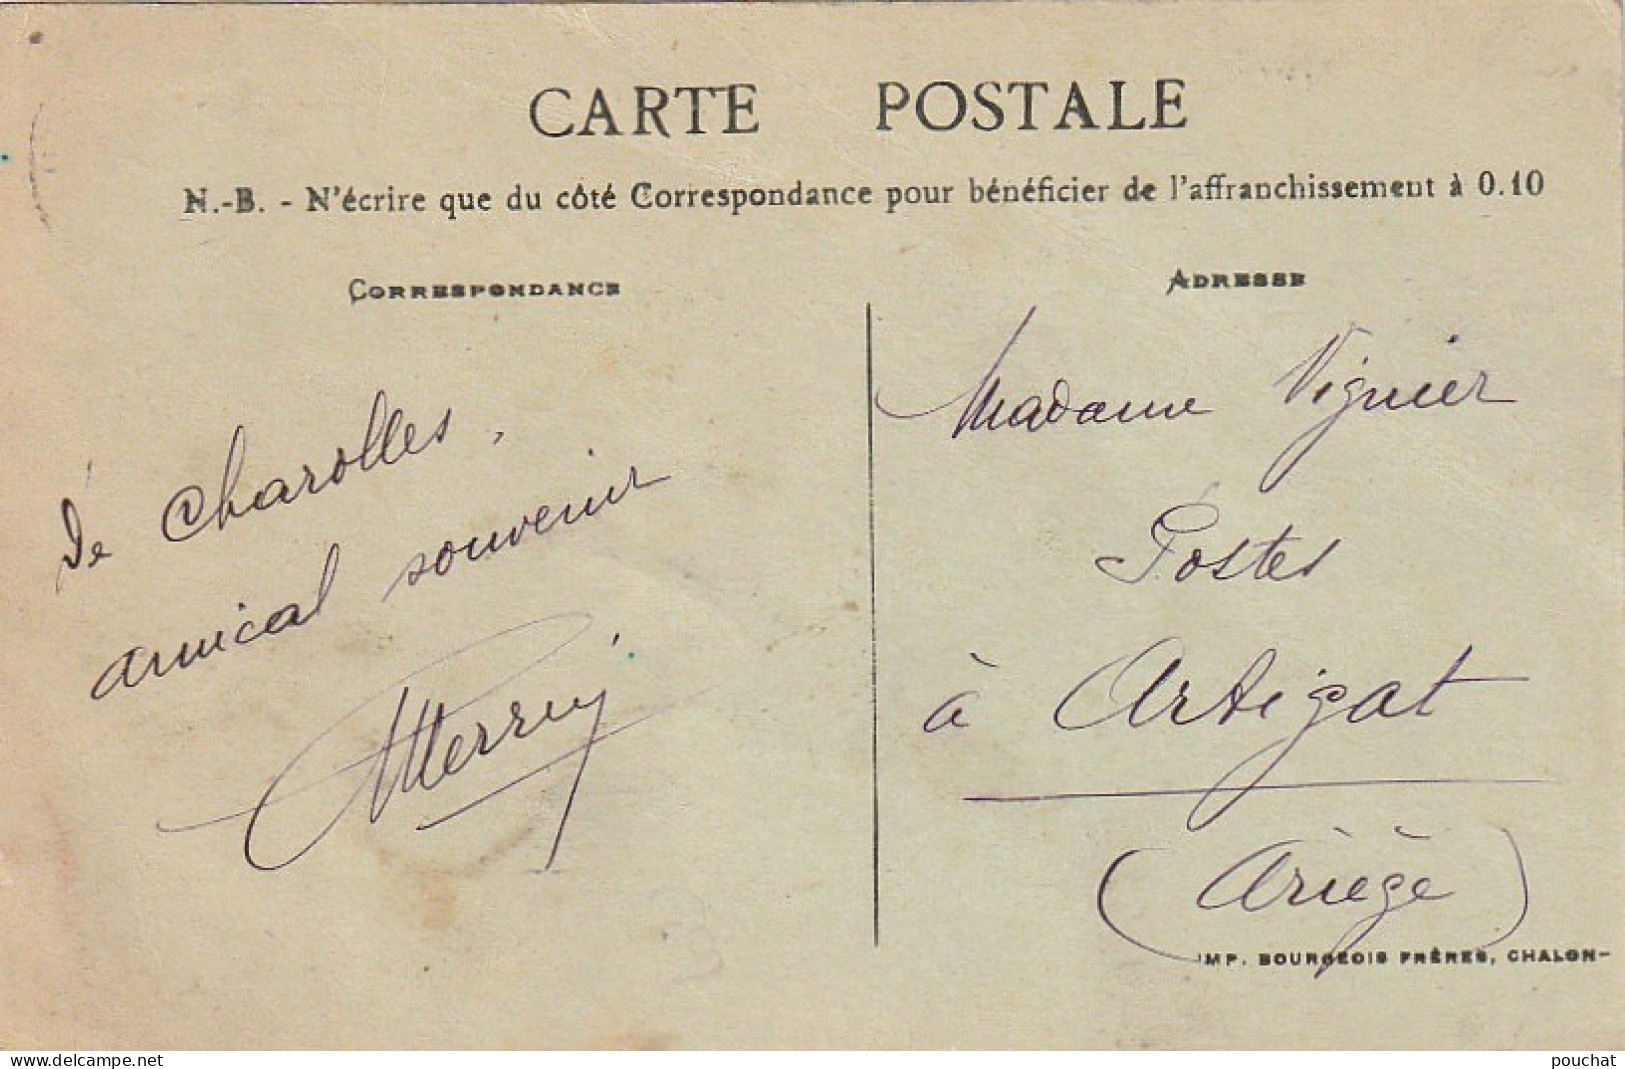 CARTE POSTALE
N.-B. - N'écrire que du côté Correspondance pour bénéficier de l'affranchissement à 0.10
CORRESPONDANCE
De Charolles,
amical souvenir
ADRESSE
Madame Vignier
Postes
à Artigat
(Ariège)
IMP. BOURGEOIS FRÈRES, CHALON-
www.delcampe.net
pouchat